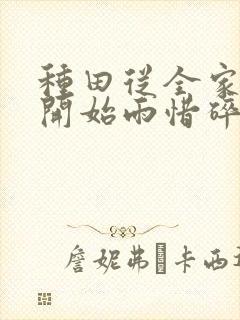 種田從全家
開始雨惜碎
詹妮弗 卡西